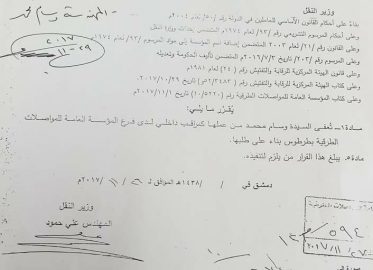 المهندسة وسام محمد
وزير النقل
بناء على أحكام القانون الأساسي للعاملين في الدولة رقم /٥٠/ لعام ٢٠٠٤م
وعلى أحكام المرسوم التشريعي رقم /٩٣/ لعام ١٩٧٤ المتضمن إحداث وزارة النقل
وعلى القانون رقم /٢١/ لعام ٢٠٠٣ المتضمن إضافة اسم المؤسسة إلى مواد المرسوم /٩٣/ لعام ١٩٧٤م
وعلى أحكام المرسوم رقم /٢٠٣/ تاريخ ٢٠١٦/٧/٣ المتضمن تأليف الحكومة وتعديله
وعلى قانون الهيئة المركزية للرقابة والتفتيش رقم /٢٤/ لعام ١٩٨١م
وعلى كتاب الهيئة المركزية للرقابة والتفتيش رقم تاريخ ٢٠١٧/١٠/٢٩
وعلى كتاب المؤسسة العامة للمواصلات الطرقية رقم تاريخ ٢٠١٧/١١/١
٢٠١٧
١١-٢٩
يقرر ما يلي:
مادة١- تعفى السيدة وسام محمد من عملها كمراقب داخلي لدى فرع المؤسسة العامة للمواصلات
الطرقية بطرطوس بناء على طلبها.
مادة٥. يبلغ هذا القرار من يلزم لتنفيذه.
دمشق في / /١٤٣٨هـ الموافق لـ / /٢٠١٧م
وزير النقل
المهندس علي حمود
٥٩٤
٢٠١٧/١١/٢٧